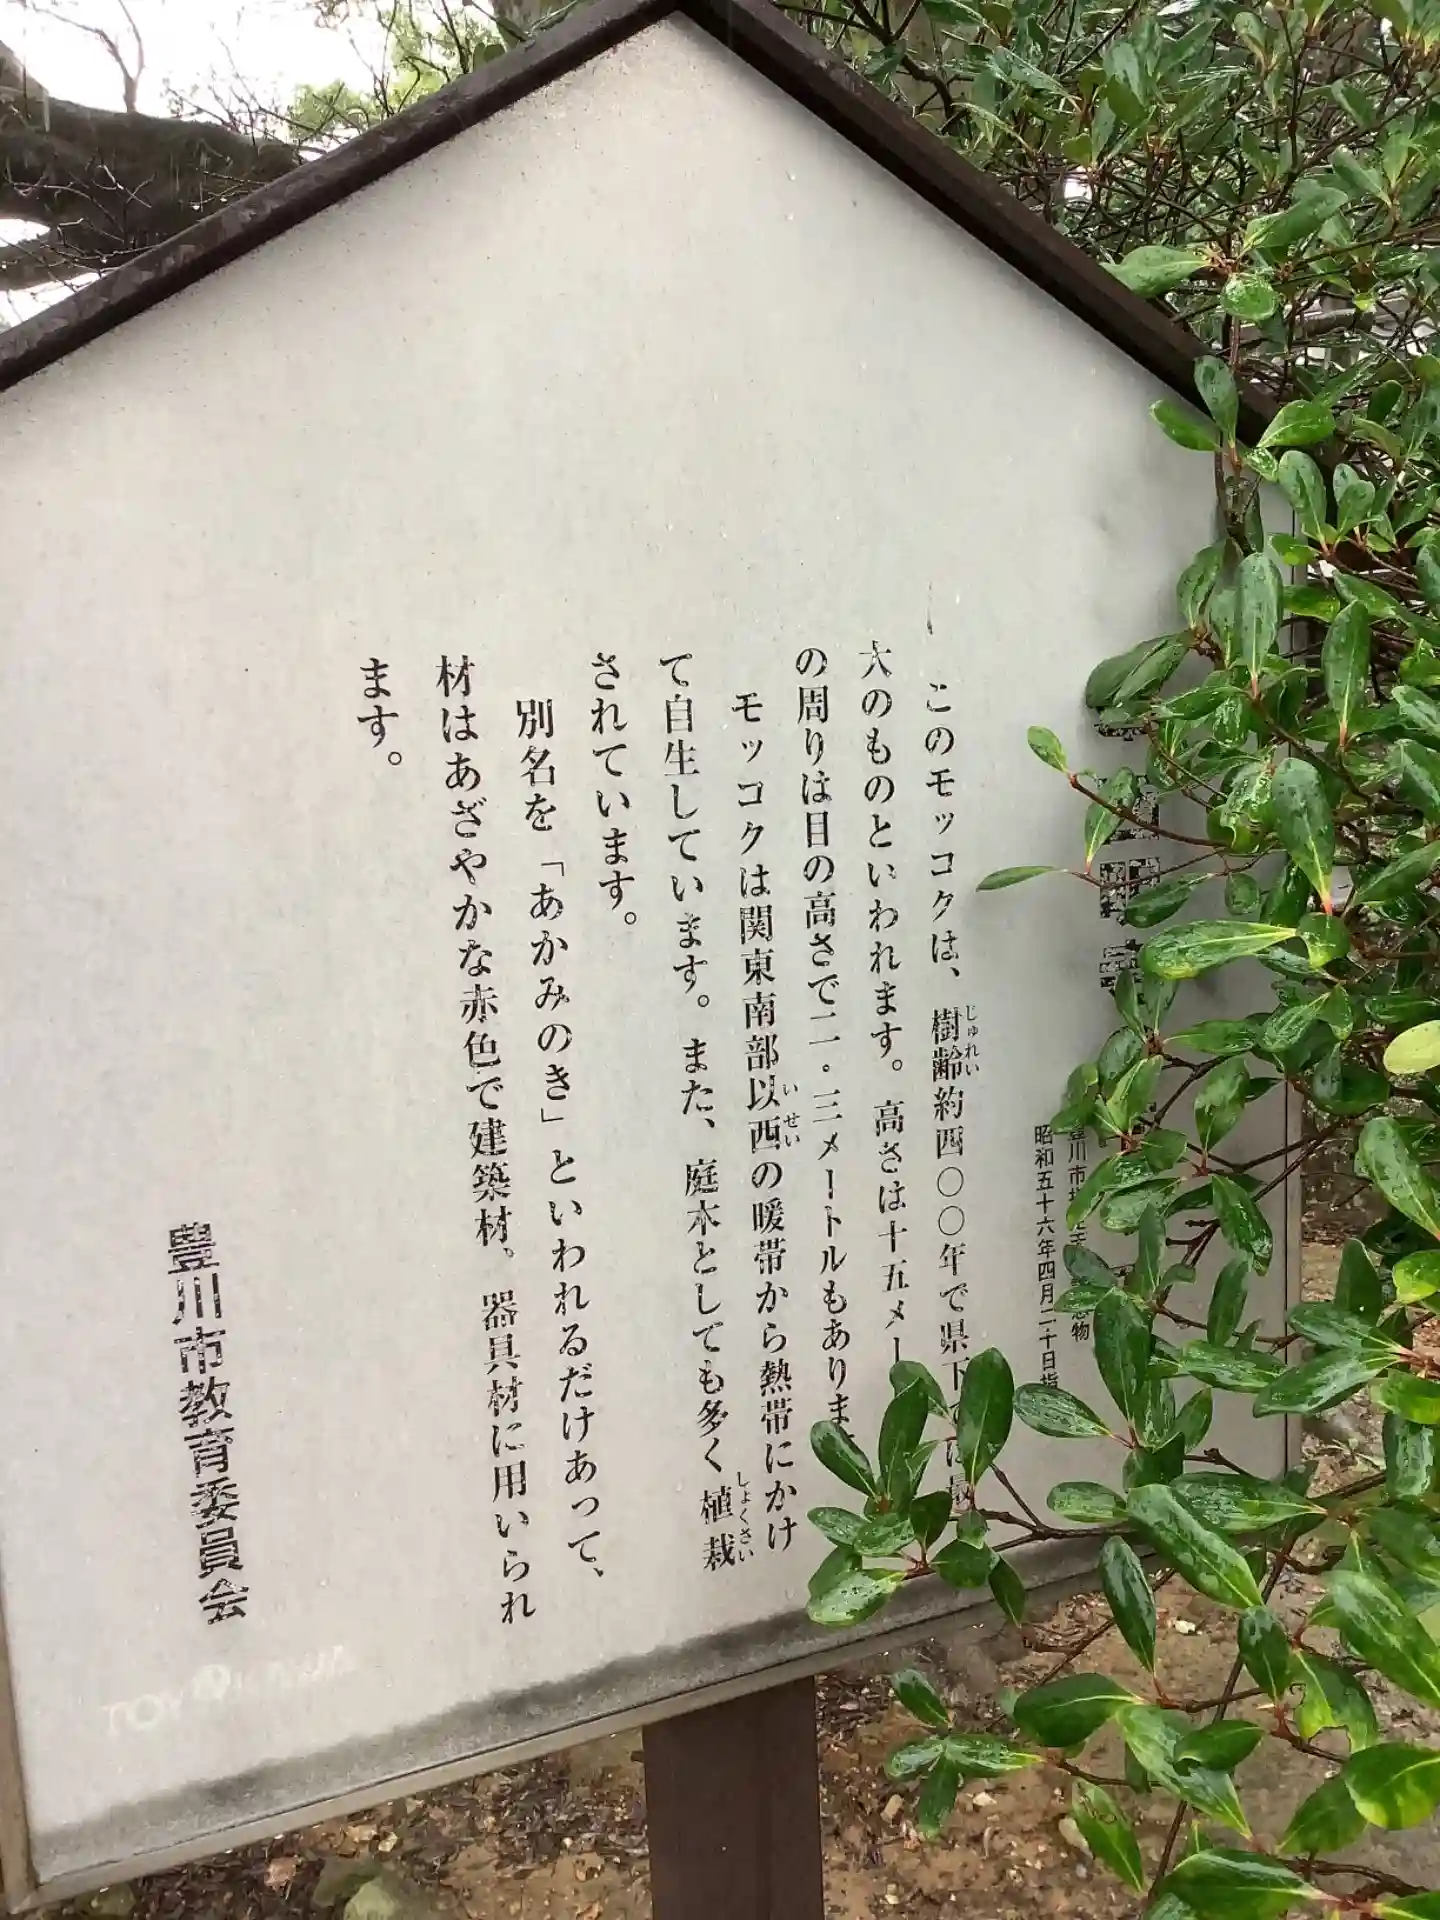 豊川市
昭和五十六年四月二十日指
このモッコクは、樹齢約四〇〇年で県下では最
大のものといわれます。高さは十五メー
の周りは目の高さで二・三メートルもありま
モッコクは関東南部以西の暖帯から熱帯にかけ
て自生しています。また、庭木としても多く植栽
されています。
別名を「あかみのき」といわれるだけあって、
材はあざやかな赤色で建築材、器具材に用いられ
ます。
豊川市教育委員会